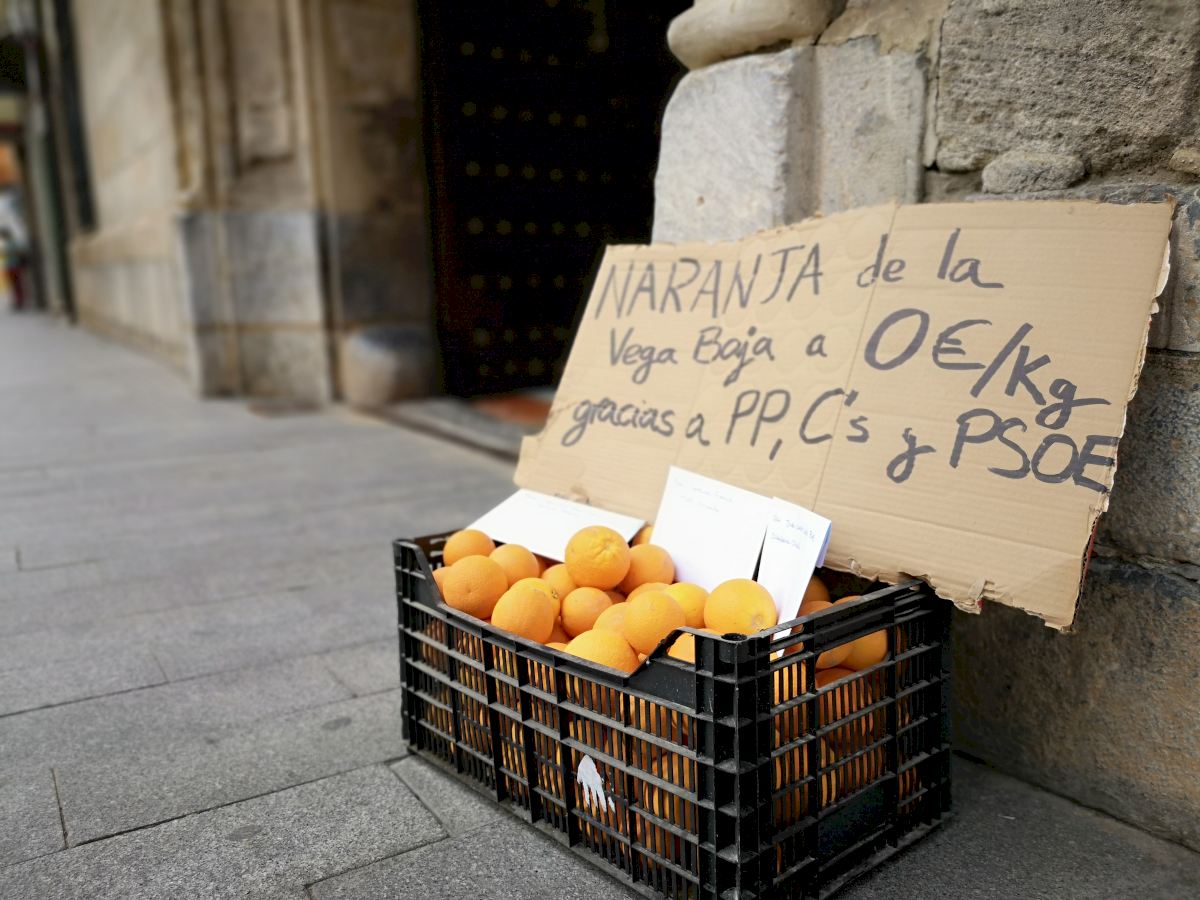 NARANJA de la
Vega Baja a 0€/Kg
gracias a PP, C's y PSOE